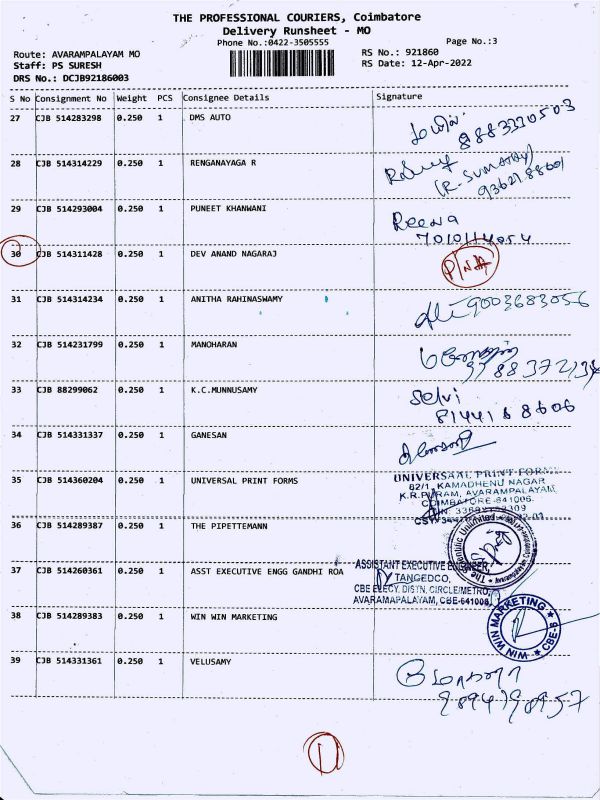 THE PROFESSIONAL COURIERS, Coimbatore
Delivery Runsheet - MO
Phone No.:0422-3505555
Page No.:3
Route: AVARAMPALAYAM MO
RS No.: 921860
Staff: PS SURESH
RS Date: 12-Apr-2022
DRS No.: DCJB92186003
S No Consignment No Weight PCS Consignee Details Signature
27 CJB 514283298 0.250 1 DMS AUTO
28 CJB 514314229 0.250 1 RENGANAYAGA R
29 CJB 514293004 0.250 1 PUNEET KHANWANI Reena
7010114054
30 CJB 514311428 0.250 1 DEV ANAND NAGARAJ
31 CJB 514314234 0.250 1 ANITHA RAHINASWAMY 9003683056
32 CJB 514231799 0.250 1 MANOHARAN
33 CJB 88299062 0.250 1 K.C.MUNNUSAMY Selvi
34 CJB 514331337 0.250 1 GANESAN
35 CJB 514360204 0.250 1 UNIVERSAL PRINT FORMS
UNIVERSAL PRINT FORMS
82/1, KAMADHENU NAGAR
K.R.PURAM, AVARAMPALAYAM
COIMBATORE-641006.
36 CJB 514289387 0.250 1 THE PIPETTEMANN
37 CJB 514260361 0.250 1 ASST EXECUTIVE ENGG GANDHI ROA
ASSISTANT EXECUTIVE ENGINEER,
TANGEDCO,
CBE ELECY. DISTN. CIRCLE/METRO,
AVARAMAPALAYAM, CBE-641006.
38 CJB 514289383 0.250 1 WIN WIN MARKETING
WIN WIN MARKETING
CBE-6
39 CJB 514331361 0.250 1 VELUSAMY